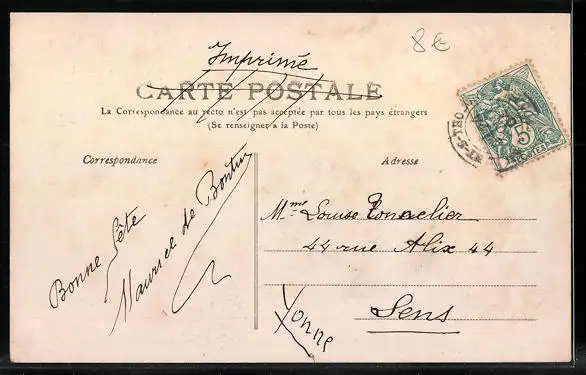 8€
Imprimé
CARTE POSTALE
La Correspondance au recto n'est pas acceptée par tous les pays étrangers
(Se renseigner à la Poste)
Correspondance
Adresse
Bonne fête
Maurice de
Mme Louise
44 rue Alix 44
Sens
Yonne
5